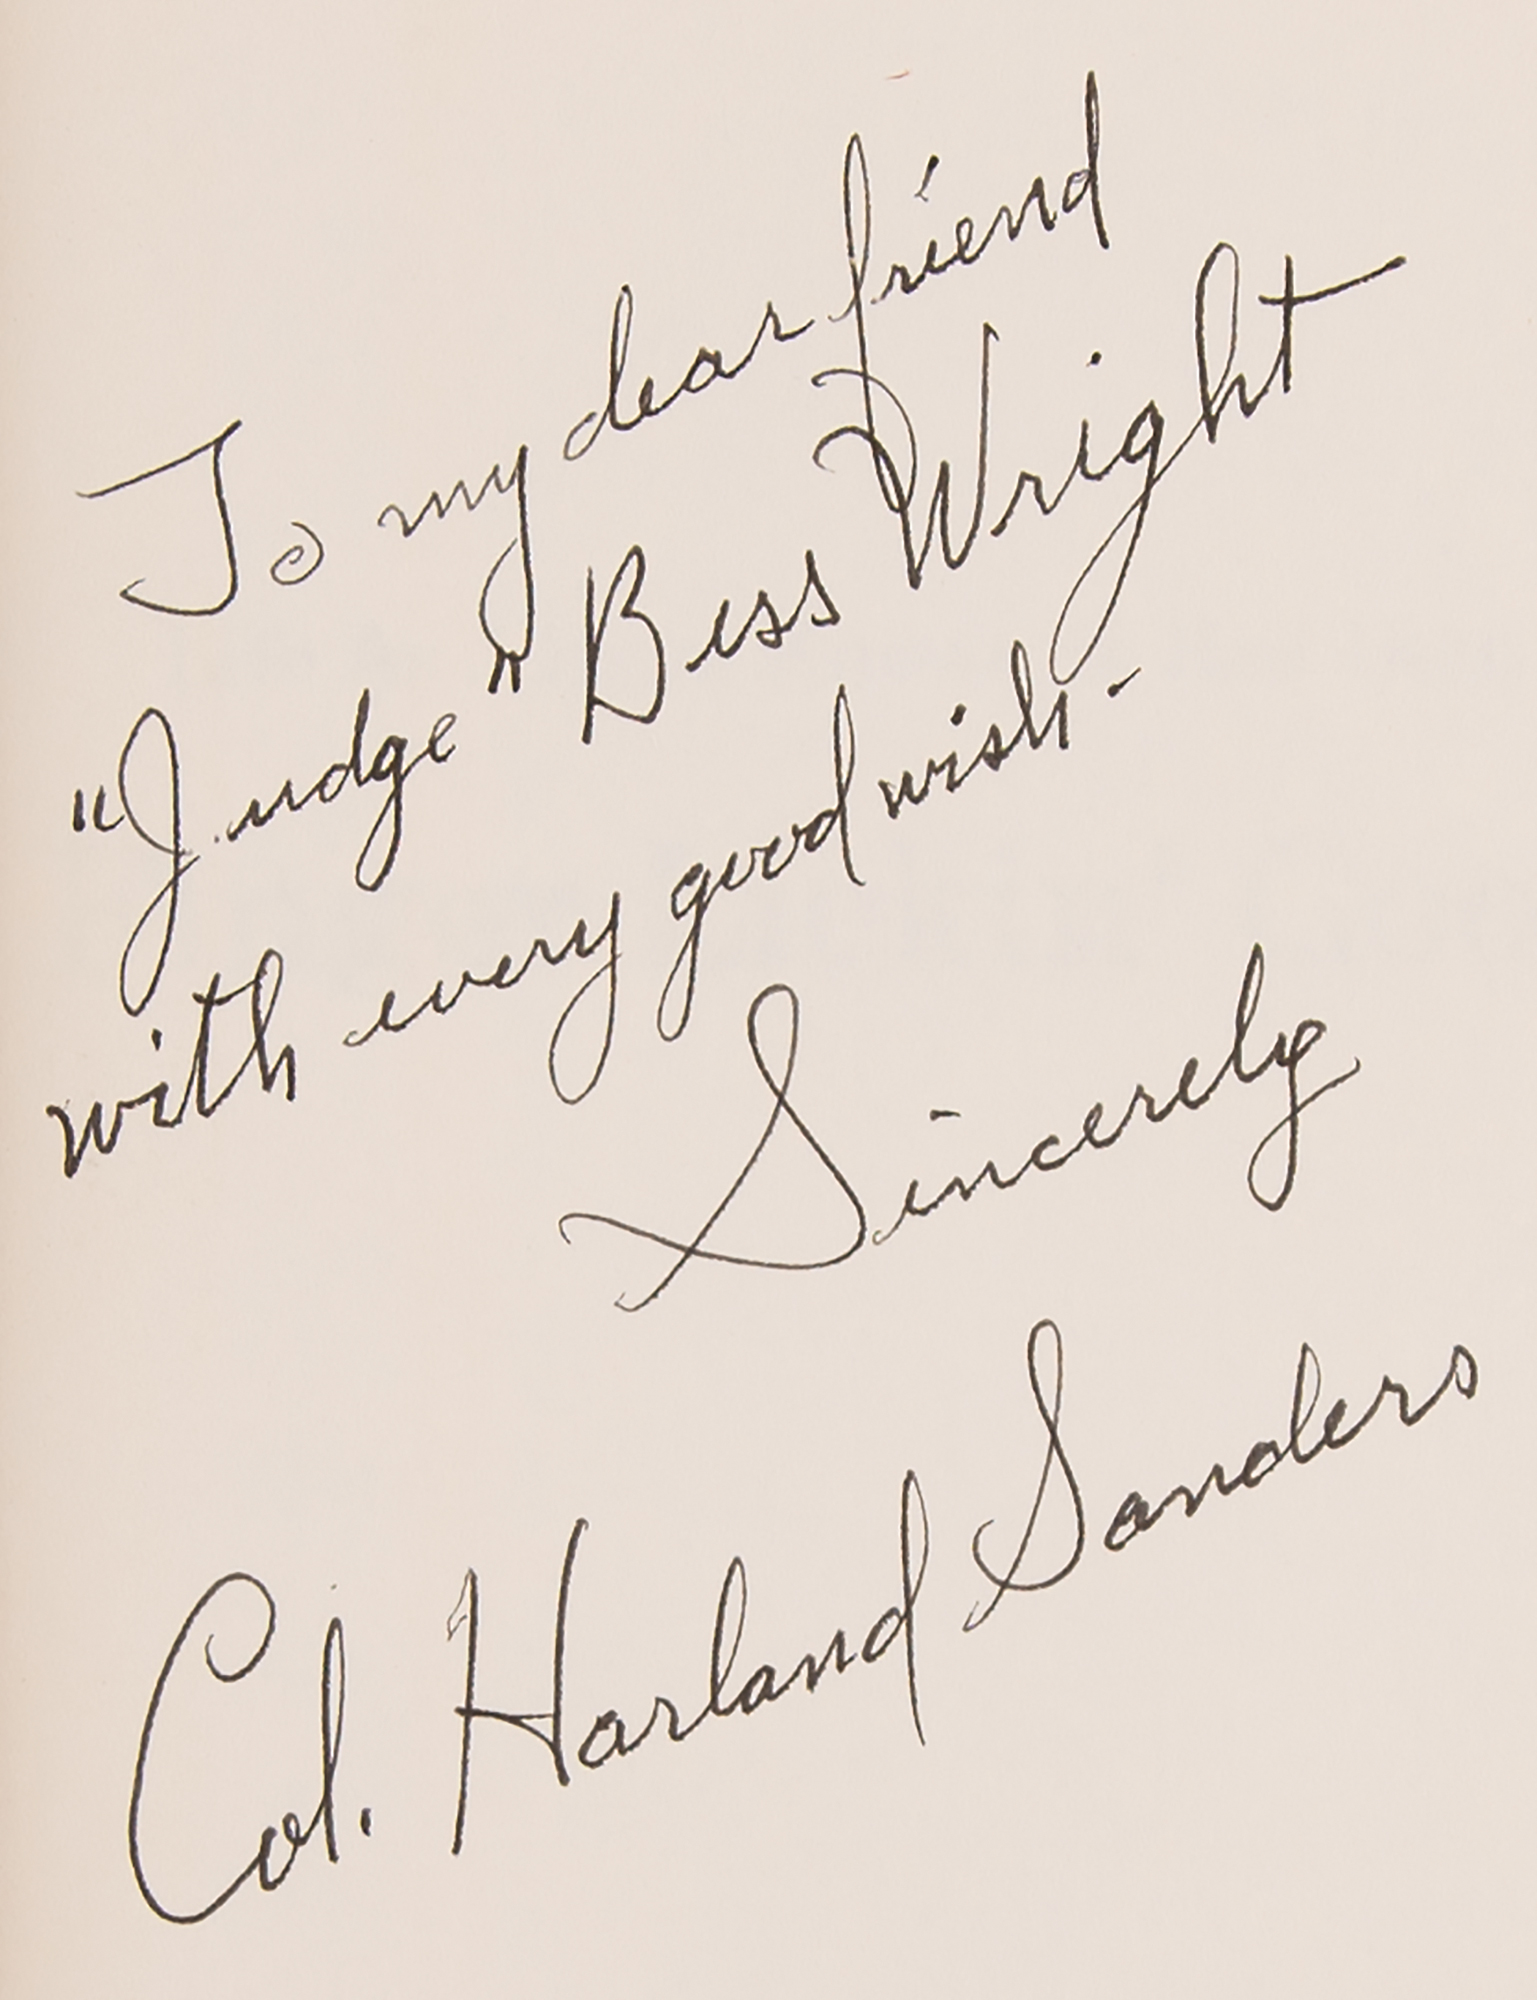 To my dear friend
"Judge" Bess Wright
with every good wish-
Sincerely
Col. Harland Sanders